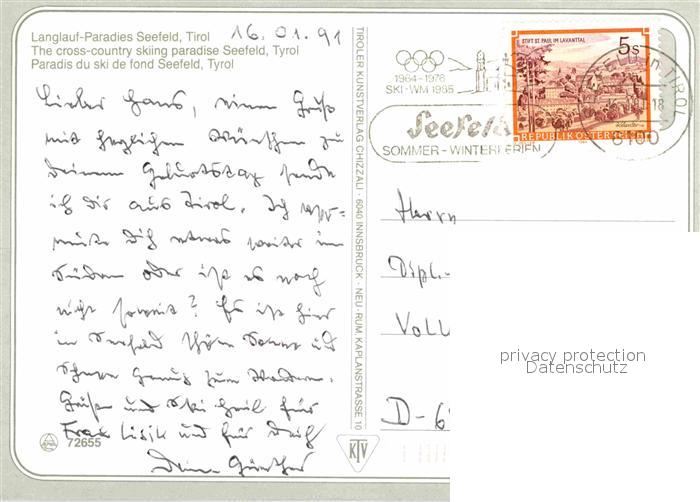 Langlauf-Paradies Seefeld, Tirol
The cross-country skiing paradise Seefeld, Tyrol
Paradis du ski de fond Seefeld, Tyrol
16.01.91
Lieber Hans, einen Gruß
mit herzlichen Wünschen zu
Deinem Geburtstag sende
ich Dir aus Tirol. Ich
Dich etwas weiter im
Süden oder ist es noch
nicht soweit? Es ist hier
in Seefeld Sonne und
Schnee genug zum Wandern.
Grüße und Ski Heil für
Frau und für Dich
Dein Günther
72655
TIROLER KUNSTVERLAG CHIZZALI · 6040 INNSBRUCK · NEU-RUM KAPLANSTRASSE 10
KTV
1964-1976
SKI-WM 1985
Seefeld
SOMMER-WINTERFERIEN
STIFT ST. PAUL IM LAVANTTAL
5s
REPUBLIK ÖSTERREICH
SEEFELD in TIROL
-18
6100
Herrn
Dipl.-
D-6
privacy protection
Datenschutz